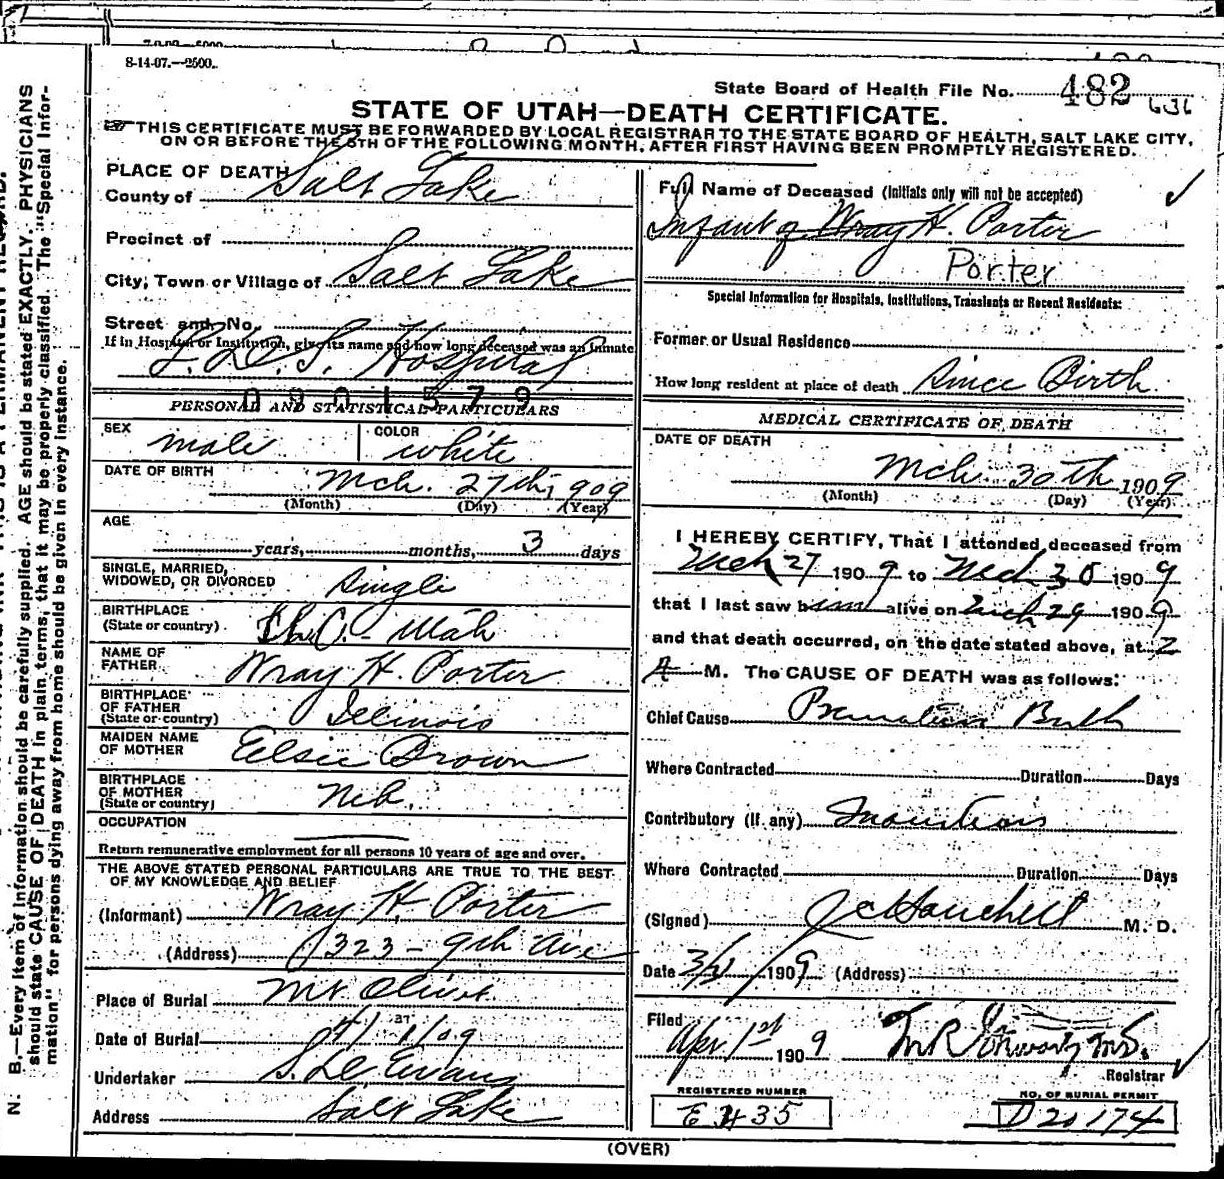 8-14-07.—2500.
State Board of Health File No. 482 636
STATE OF UTAH—DEATH CERTIFICATE.
THIS CERTIFICATE MUST BE FORWARDED BY LOCAL REGISTRAR TO THE STATE BOARD OF HEALTH, SALT LAKE CITY,
ON OR BEFORE THE 5TH OF THE FOLLOWING MONTH, AFTER FIRST HAVING BEEN PROMPTLY REGISTERED.
N. B.—Every item of information should be carefully supplied. AGE should be stated EXACTLY. PHYSICIANS
should state CAUSE OF DEATH in plain terms, that it may be properly classified. The "Special Infor-
mation" for persons dying away from home should be given in every instance.
PLACE OF DEATH
County of Salt Lake
Precinct of
City, Town or Village of Salt Lake
Street and No.
If in Hospital or Institution, give its name and how long deceased was an inmate
L.D.S. Hospital
0901579
PERSONAL AND STATISTICAL PARTICULARS
SEX male COLOR white
DATE OF BIRTH Mch. 27th, 1909
(Month) (Day) (Year)
AGE
years, months, 3 days
SINGLE, MARRIED,
WIDOWED, OR DIVORCED Single
BIRTHPLACE
(State or country) Utah
NAME OF
FATHER Wray H. Porter
BIRTHPLACE
OF FATHER
(State or country) Illinois
MAIDEN NAME
OF MOTHER Elsie Brown
BIRTHPLACE
OF MOTHER
(State or country) Neb.
OCCUPATION
Return remunerative employment for all persons 10 years of age and over.
THE ABOVE STATED PERSONAL PARTICULARS ARE TRUE TO THE BEST
OF MY KNOWLEDGE AND BELIEF
(Informant) Wray H. Porter
(Address) 1323 - 9th Ave
Place of Burial Mt Olivet.
Date of Burial 4/1/09
Undertaker S. D. Evans
Address Salt Lake
Full Name of Deceased (Initials only will not be accepted)
Infant of Wray H. Porter
Porter
Special Information for Hospitals, Institutions, Transients or Recent Residents:
Former or Usual Residence
How long resident at place of death Since Birth
MEDICAL CERTIFICATE OF DEATH
DATE OF DEATH
Mch. 30th 1909
(Month) (Day) (Year)
I HEREBY CERTIFY, That I attended deceased from
Mch 27 1909 to Mch 30 1909
that I last saw him alive on Mch 29 1909
and that death occurred, on the date stated above, at 2
A M. The CAUSE OF DEATH was as follows:
Chief Cause Premature Birth
Where Contracted Duration Days
Contributory (if any) Inanition
Where Contracted Duration Days
(Signed) M. D.
Date 3/31/1909 (Address)
Filed
Apr. 1st 1909
Registrar
REGISTERED NUMBER
E 435
NO. OF BURIAL PERMIT
D20174
(OVER)